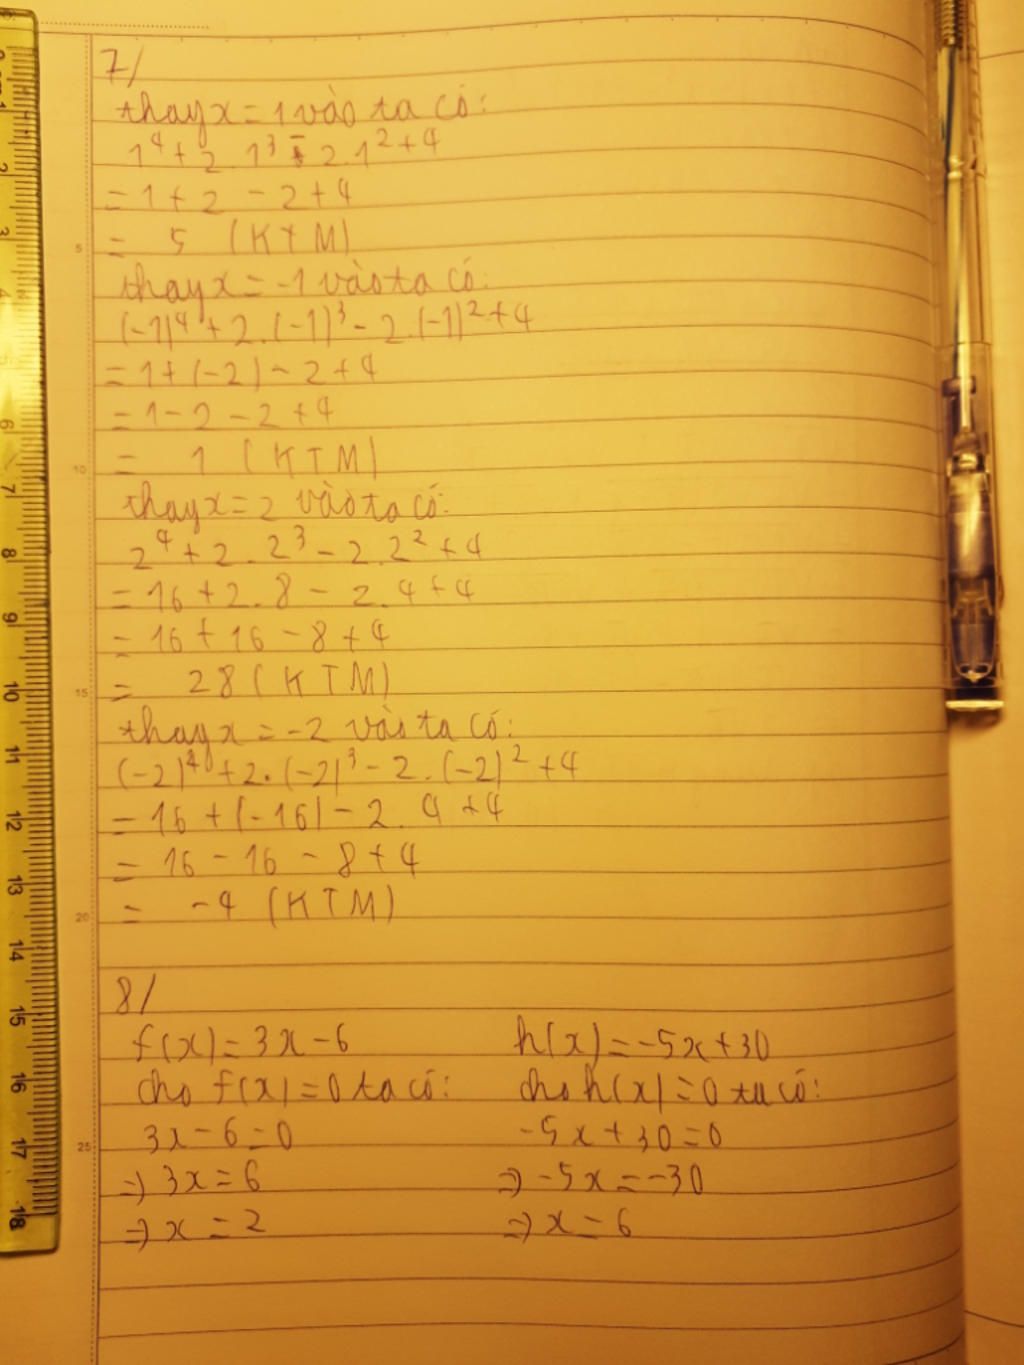 7/
thay x = 1 vào ta có:
1⁴ + 2 . 1³ - 2 . 1² + 4
= 1 + 2 - 2 + 4
= 5 (KTM)
thay x = -1 vào ta có:
(-1)⁴ + 2 . (-1)³ - 2 . (-1)² + 4
= 1 + (-2) - 2 + 4
= 1 - 2 - 2 + 4
= 1 (KTM)
thay x = 2 vào ta có:
2⁴ + 2 . 2³ - 2 . 2² + 4
= 16 + 2 . 8 - 2 . 4 + 4
= 16 + 16 - 8 + 4
= 28 (KTM)
thay x = -2 vào ta có:
(-2)⁴ + 2 . (-2)³ - 2 . (-2)² + 4
= 16 + (-16) - 2 . 4 + 4
= 16 - 16 - 8 + 4
= -4 (KTM)
8/
f(x) = 3x - 6
cho f(x) = 0 ta có:
3x - 6 = 0
=> 3x = 6
=> x = 2
h(x) = -5x + 30
cho h(x) = 0 ta có:
-5x + 30 = 0
=> -5x = -30
=> x = 6
5
10
15
20
25
0 cm 1
2
3
4
5
6
7
8
9
10
11
12
13
14
15
16
17
18